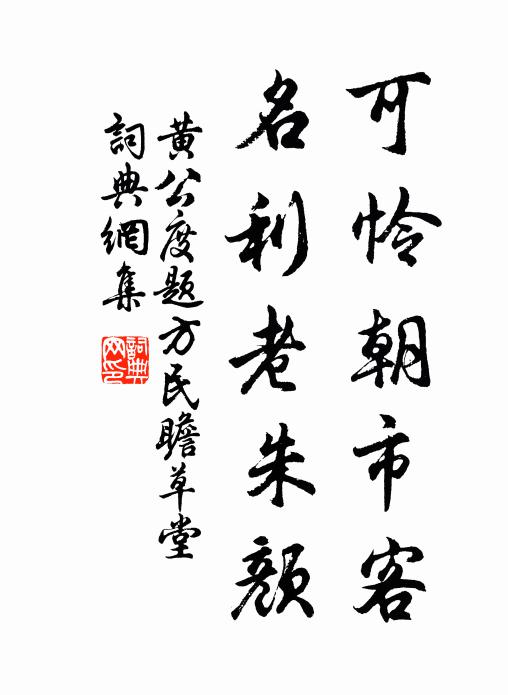 可怜朝市客
名利老朱颜
黄公度题方民瞻草堂
詞典網集
詞典网印